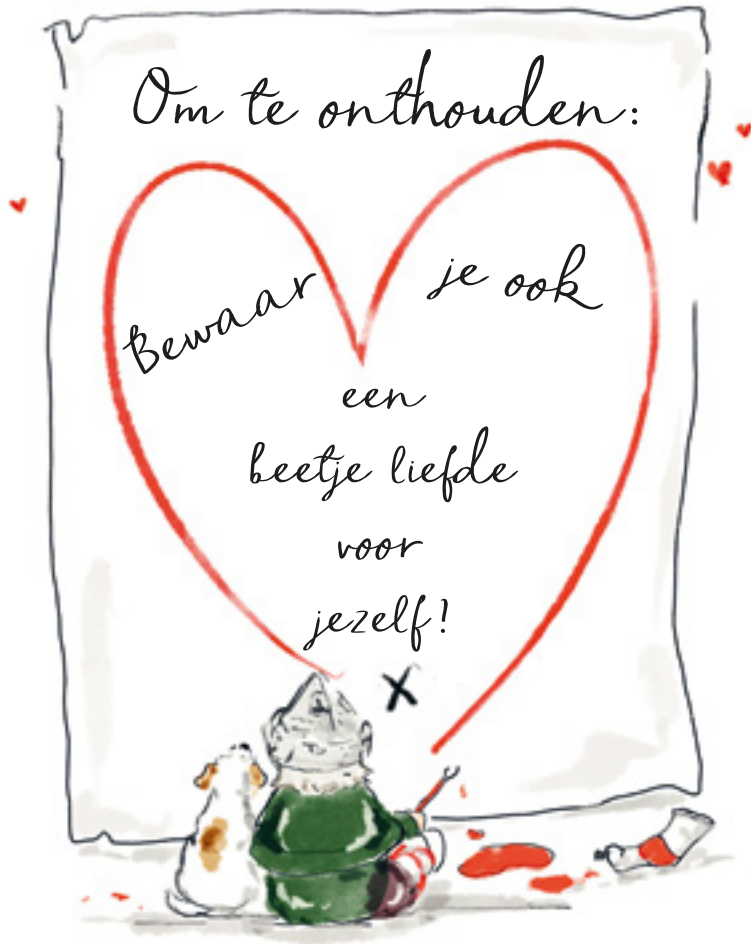 Om te onthouden:
Bewaar je ook
een
beetje liefde
voor
jezelf!
X